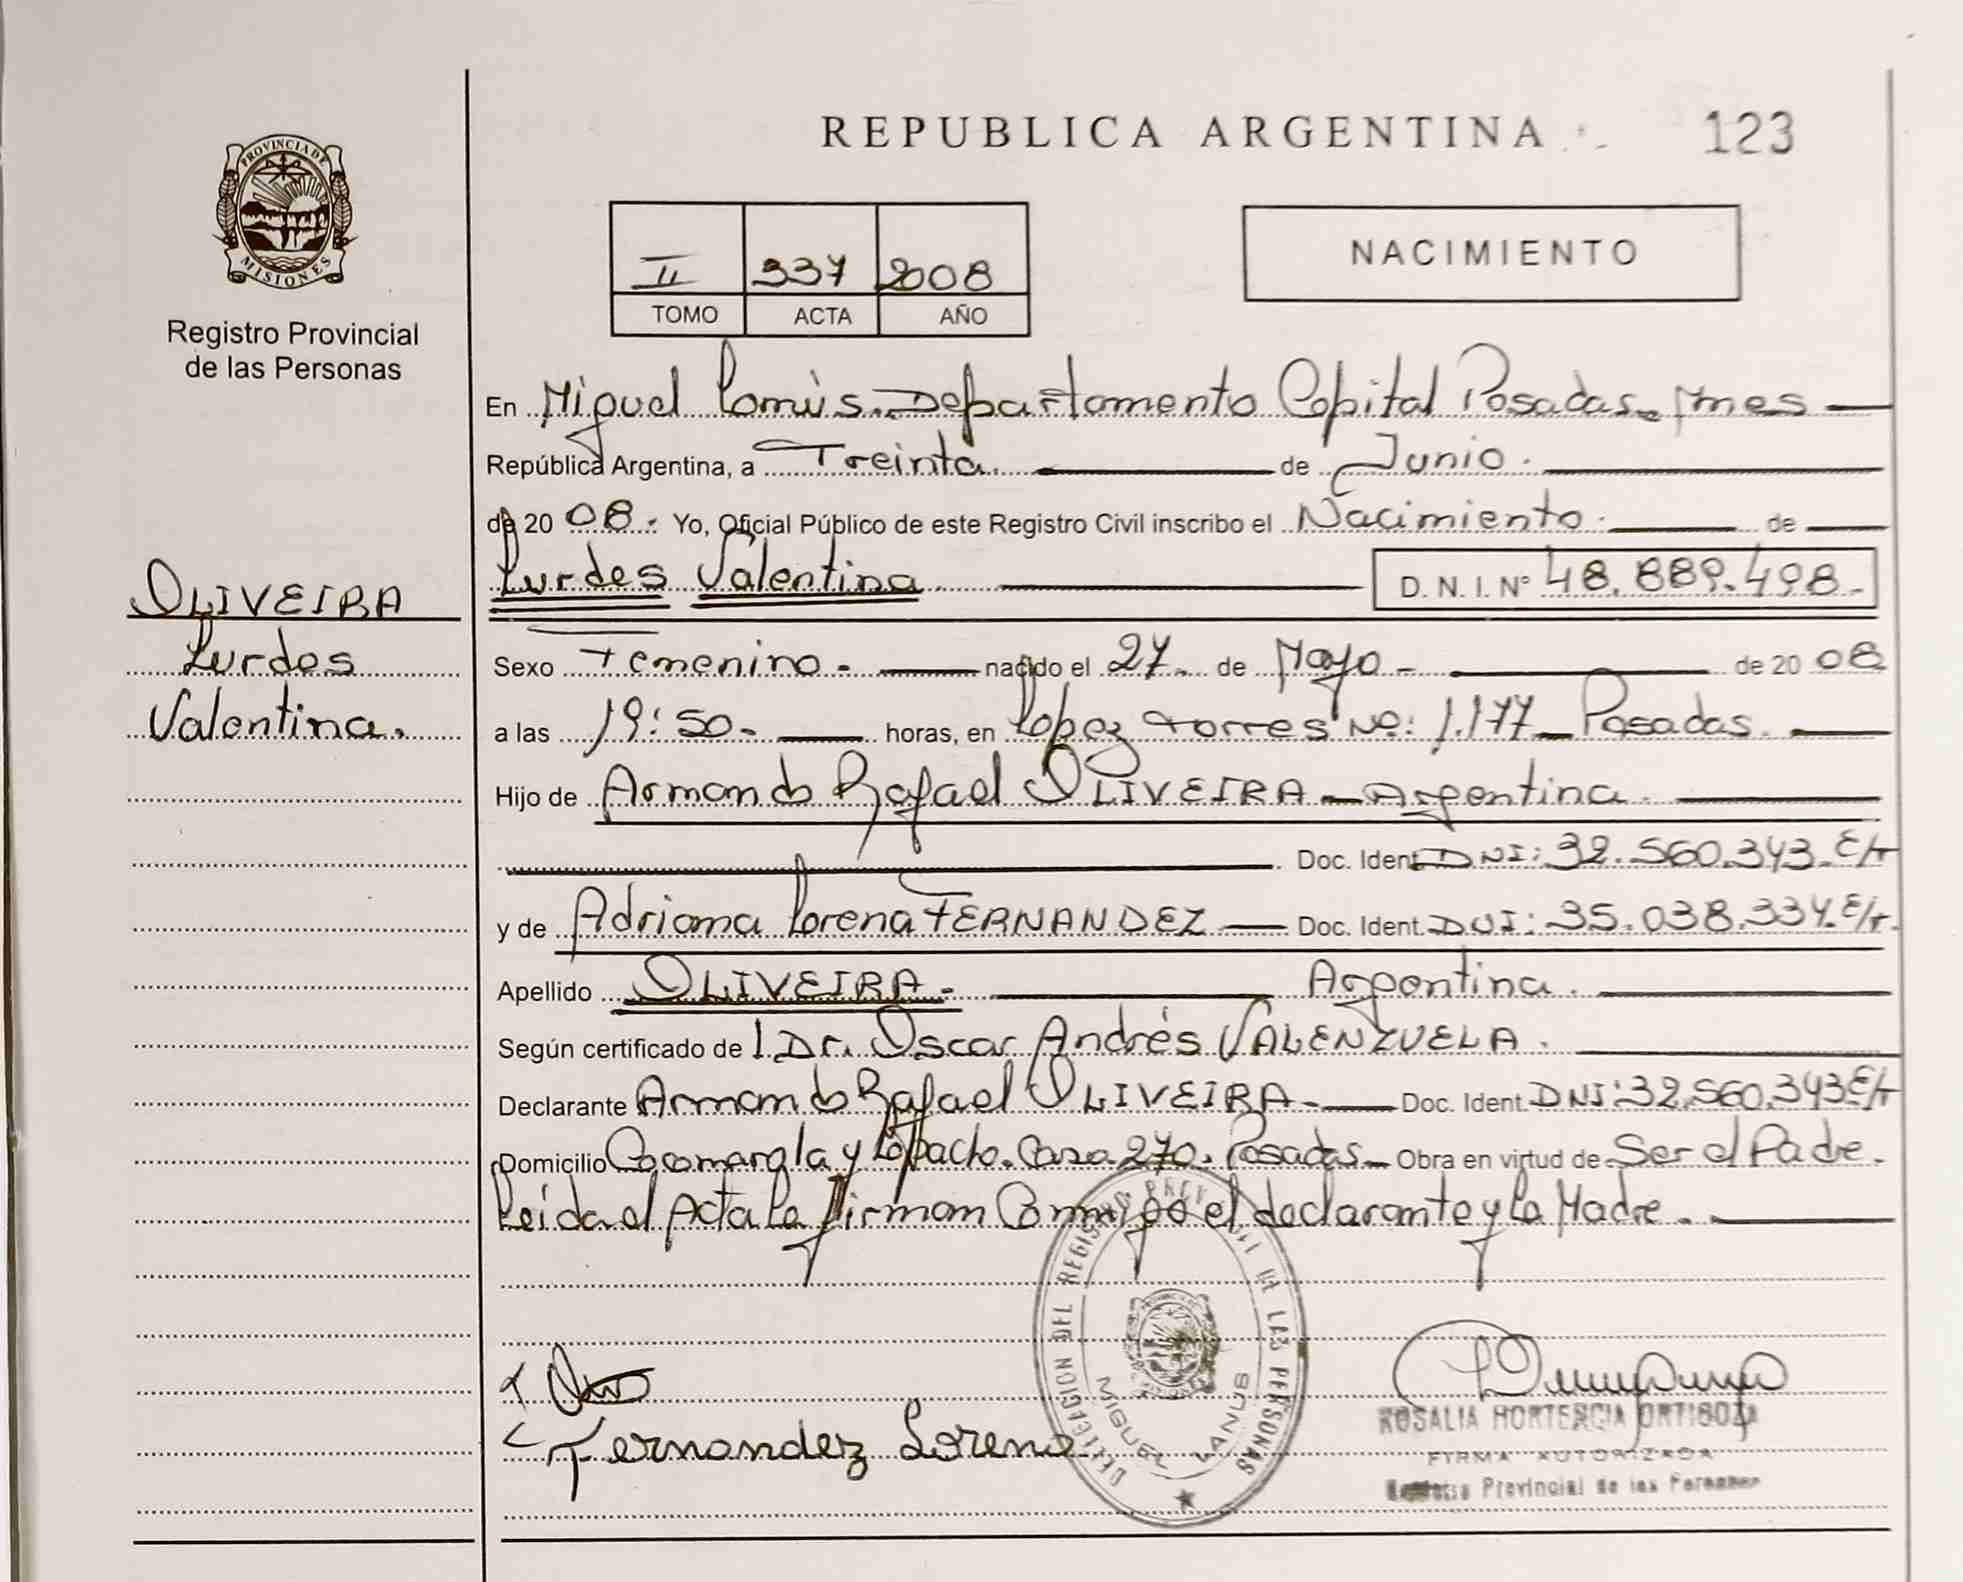 PROVINCIA DE
MISIONES
Registro Provincial
de las Personas
OLIVEIRA
Lurdes
Valentina.
REPUBLICA ARGENTINA
123
II 337 2008
TOMO ACTA AÑO
NACIMIENTO
En Miguel Lanús. Departamento Capital Posadas. Mnes
República Argentina, a Treinta. de Junio.
de 20 08. Yo, Oficial Público de este Registro Civil inscribo el Nacimiento. de
Lurdes Valentina D. N. I. Nº 48.889.498.
Sexo Femenino. nacido el 27. de Mayo. de 20 08
a las 19:50. horas, en López Torres Nº: 1.177 Posadas.
Hijo de Armando Rafael OLIVEIRA - Argentina.
Doc. Ident. DNI: 32.560.343. E/t
y de Adriana Lorena FERNANDEZ Doc. Ident. DNI: 35.038.334. E/t.
Apellido OLIVEIRA. Argentina.
Según certificado de Dr. Oscar Andrés VALENZUELA.
Declarante Armando Rafael OLIVEIRA. Doc. Ident. DNI: 32.560.343 E/t
Domicilio y Casa 270. Posadas. Obra en virtud de Ser el Padre.
Leída el Acta la firman Conmigo el declarante y la Madre.
Fernandez Lorena
DELEGACION DEL REGISTRO PROVINCIAL DE LAS PERSONAS
MIGUEL LANUS
ROSALIA HORTENCIA ORTIGOZA
FIRMA AUTORIZADA
Registro Provincial de las Personas